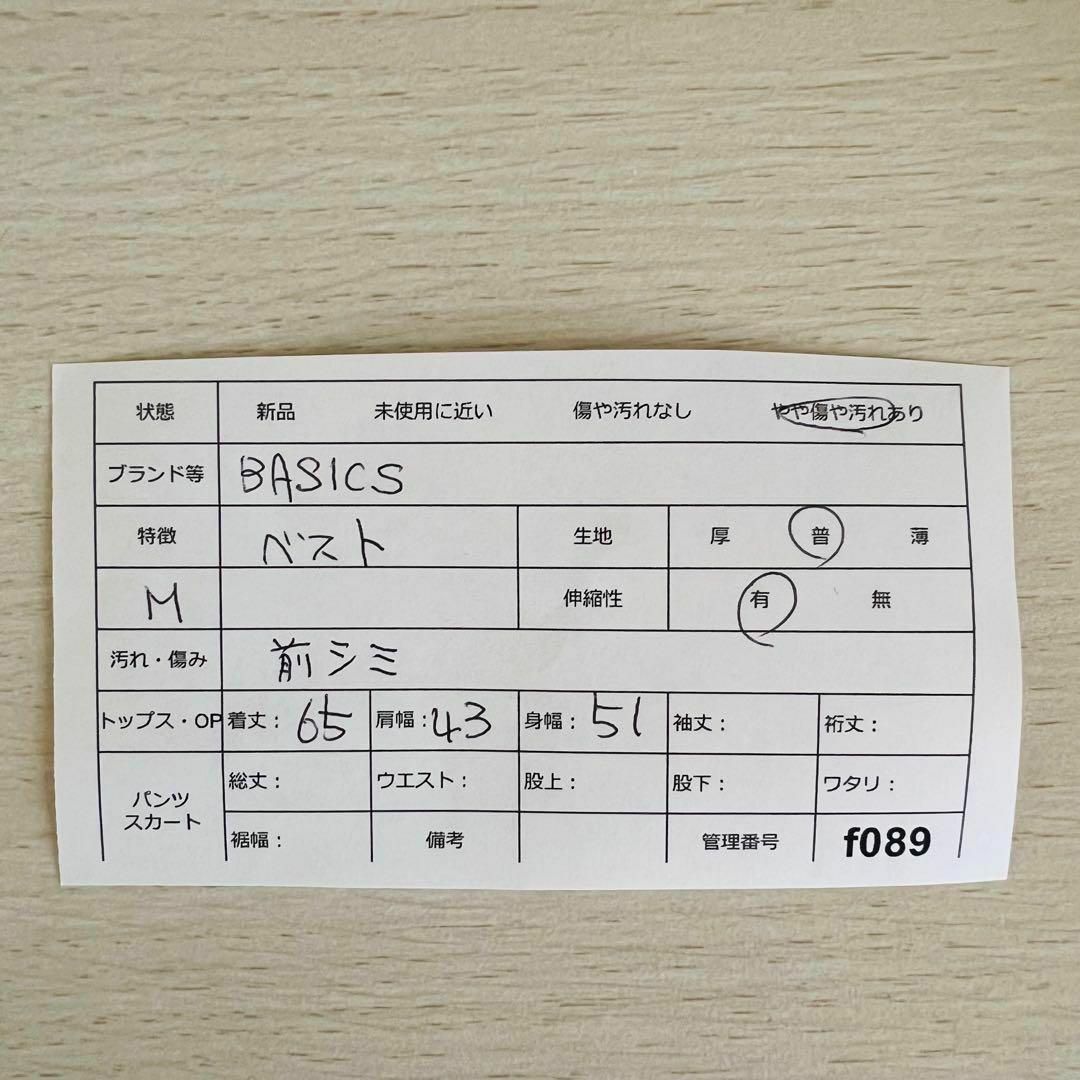 状態 新品 未使用に近い 傷や汚れなし やや傷や汚れあり
ブランド等 BASICS
特徴 ベスト 生地 厚 普 薄
M 伸縮性 有 無
汚れ・傷み 前シミ
トップス・OP 着丈：65 肩幅：43 身幅：51 袖丈： 裄丈：
パンツ
スカート
総丈： ウエスト： 股上： 股下： ワタリ：
裾幅： 備考 管理番号 f089